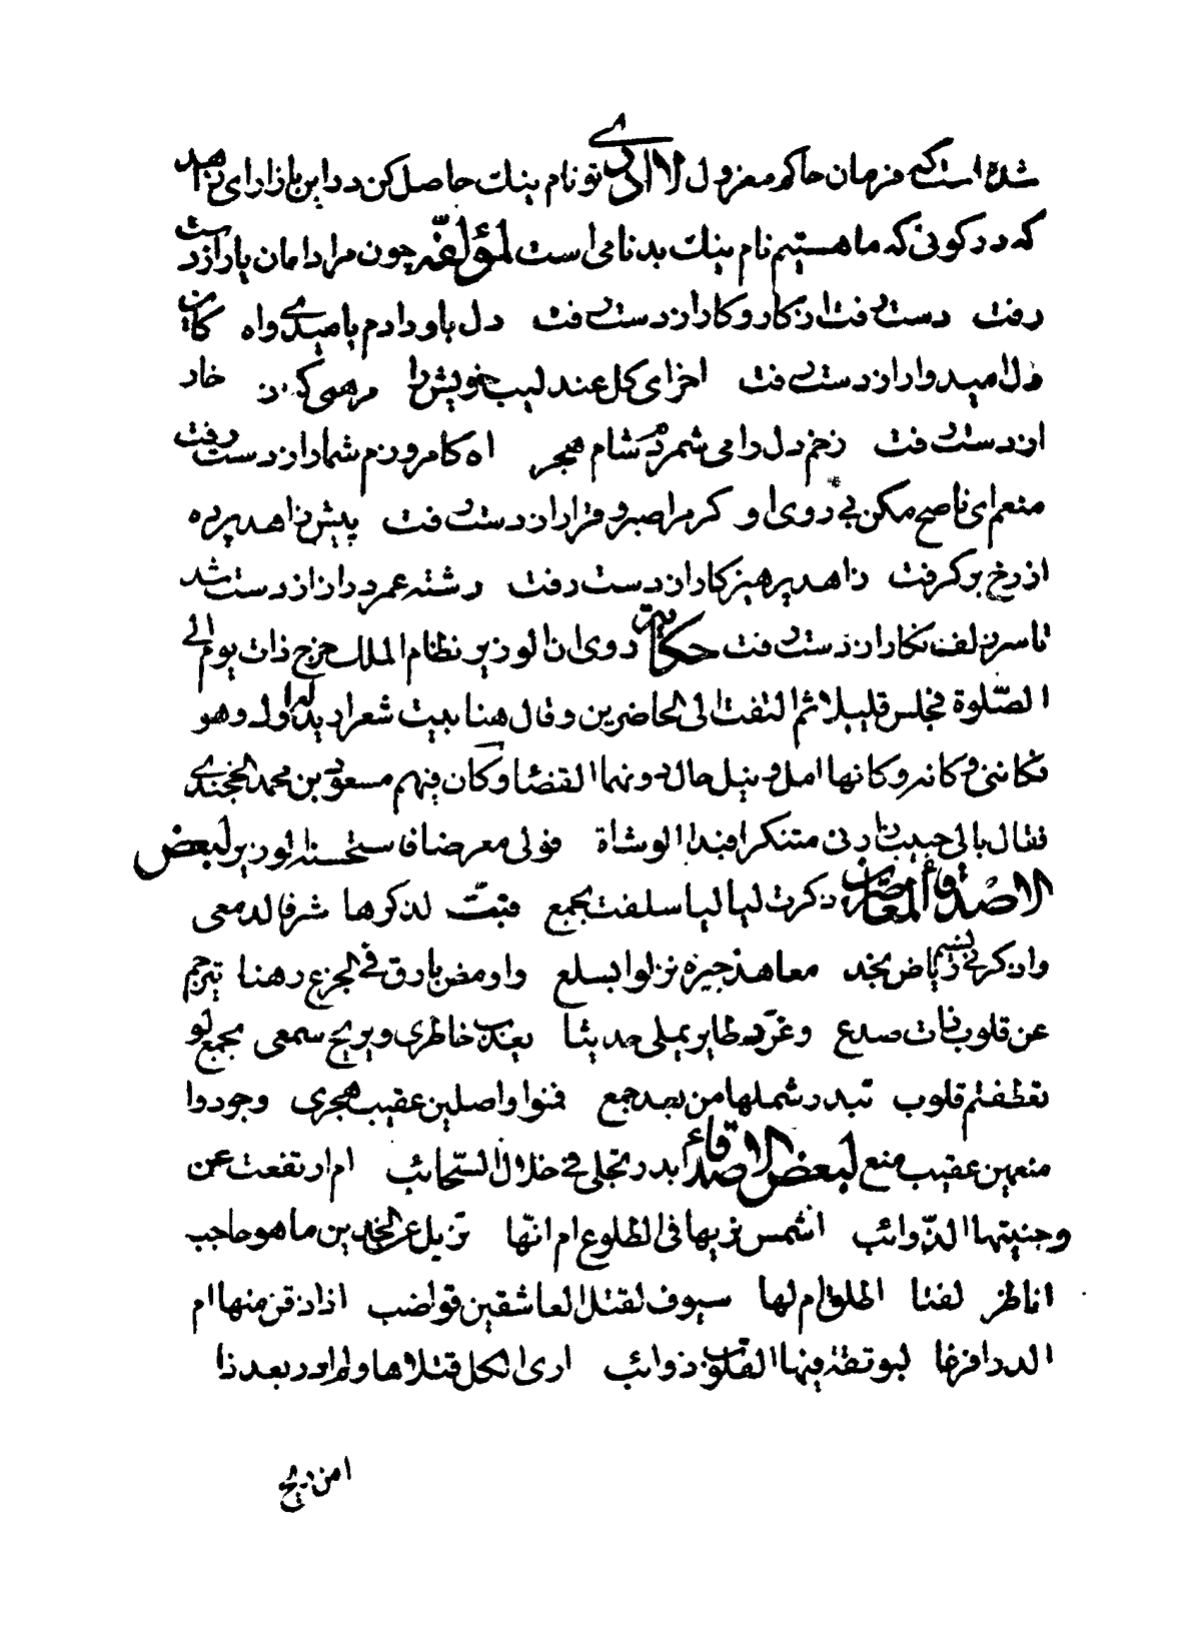 شده است که فرمان حاکم معزول لا ادری تو نام نیک حاصل کن درین بازار ای زاهد
که در کوئی که ما هستیم نام نیک بدنامی است لمؤلفه چون مرا دامان یار از دست
رفت دست رفت از کار و کار از دست رفت دل باو دادم بامیدی واه کاین
دل امیدوار از دست رفت اخر ای گل عندلیب خویش را مرهمی کن خار
از دست رفت زخم دل را می شمردم شام هجر اه کامروزم شمار از دست رفت
منعم ای ناصح مکن بی روی او کر مرا صبر و قرار از دست رفت پیش زاهد پرده
از رخ برگرفت زاهد پرهیزکار از دست رفت رشته عمر دراز از دست شد
تا سر زلف نگار از دست رفت حکایة روی ان الوزیر نظام الملک خرج ذات یوم الی
الصّلوة فجلس قلیلا ثم التفت الی الحاضرین وقال هنا بیت شعر ارید له اول وهو
فکاننی وکانه وکانها امل ونیل حال دونهما القضا وکان فیهم مسعود بن محمد الخجندی
فقال بابی حبیب زارنی متنکرا فبدا الوشاة فولی معرضا فاستحسنه الوزیر لبعض
الاصدقاء المعاصرین ذکرت لیالیا سلفت بجمع فبتّ لذکرها شرقا لدمعی
واذکرنی نسیم ریاض نجد معاهد جیرة نزلوا بسلع واومض بارق فی الجزع رهنا یترجم
عن قلوب ذات صدع وغرّد طایر یملی حدیثا یعذب خاطری ویریح سمعی بجمع لو
تعطفتم قلوب تبدد شملها من بعد جمع فنوا واصلین عقیب هجری وجودوا
منعمین عقیب منع لبعض الاصدقاء بدر تجلی فی خلال السّحائب ام ارتفعت عن
وجنیتها الذّوائب اشمس نربها فی الطلوع ام انّها تزیل عن الخدین ما هو حاجب
اناظر لفتا الطلق ام لها سیوف لقتل العاشقین قواضب اذا ذقن منها ام
الدر افرغا لبوتقة فیها القلوب ذوائب اری الکل قتلاها ولم ادر بعد ذا
امن ریح